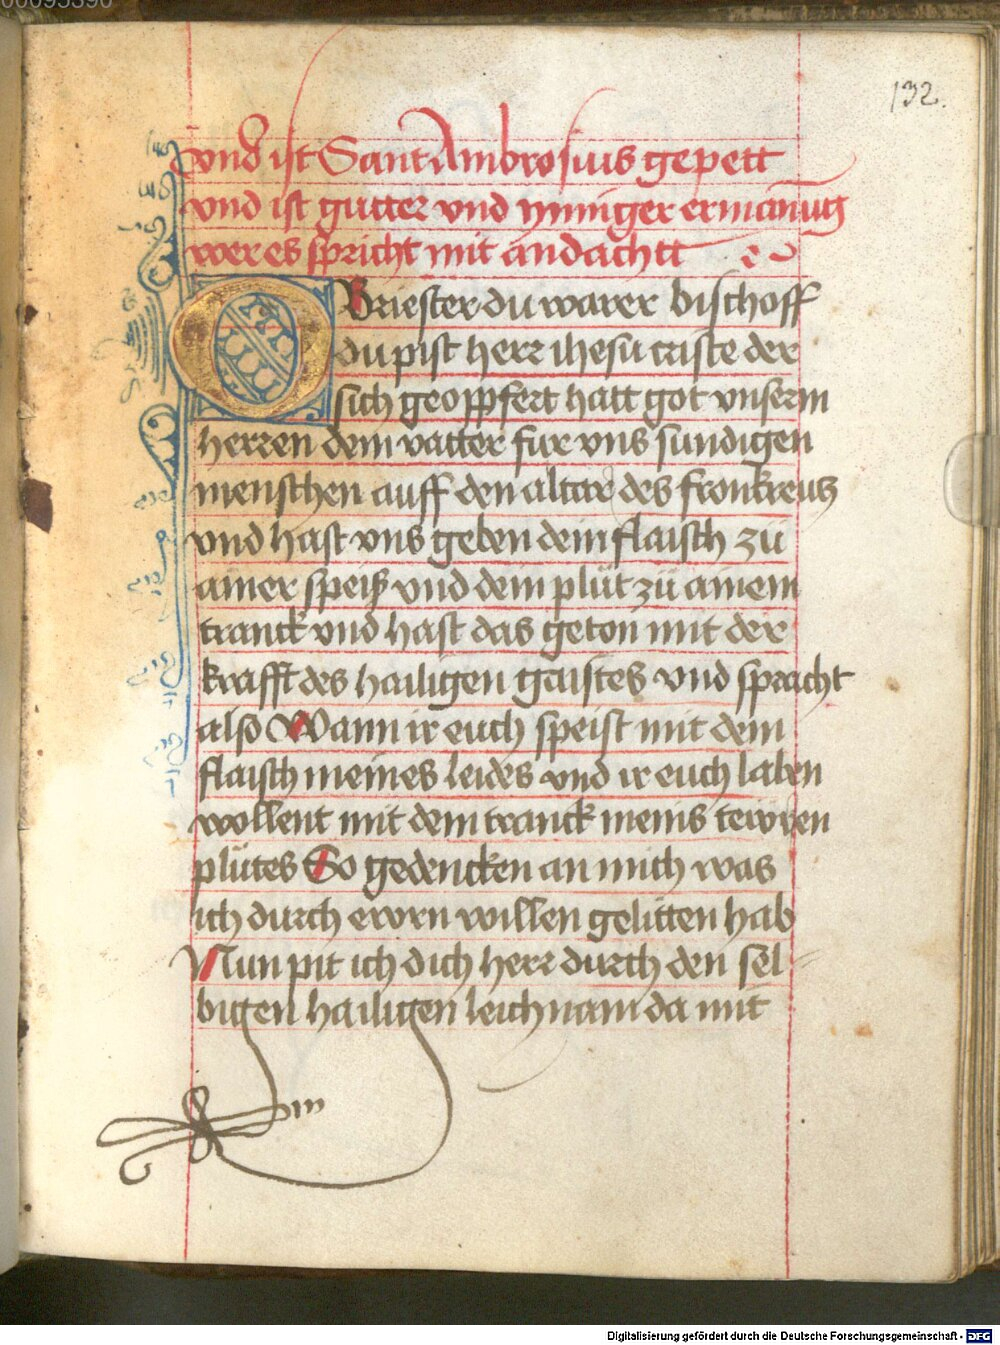 00095390
132.
vnd ist Sant Ambrosius gepett
vnd ist gutter vnd ynniger ermanūg
wer es spricht mit andachtt
O Briester du warer bischoff
du pist herr ihesu criste der
sich geopffert hatt got vnserm
herren dem vatter fur vns sundigen
menschen auff den altar des fronkreutz
vnd hast vns geben dein flaisch zů
ainer speiß vnd dein plůt zů ainem
tranck vnd hast das geton mit der
krafft des hailigen gaistes vnd spracht
also Wann ir euch speist mit dem
flaisch meines leibes vnd ir euch laben
wollent mit dem tranck meins tewren
plůtes So gedencken an mich was
ich durch ewrn willen gelitten hab
Nun pit ich dich herr durch den sel-
bigen hailigen leichnam da mit
Digitalisierung gefördert durch die Deutsche Forschungsgemeinschaft - DFG